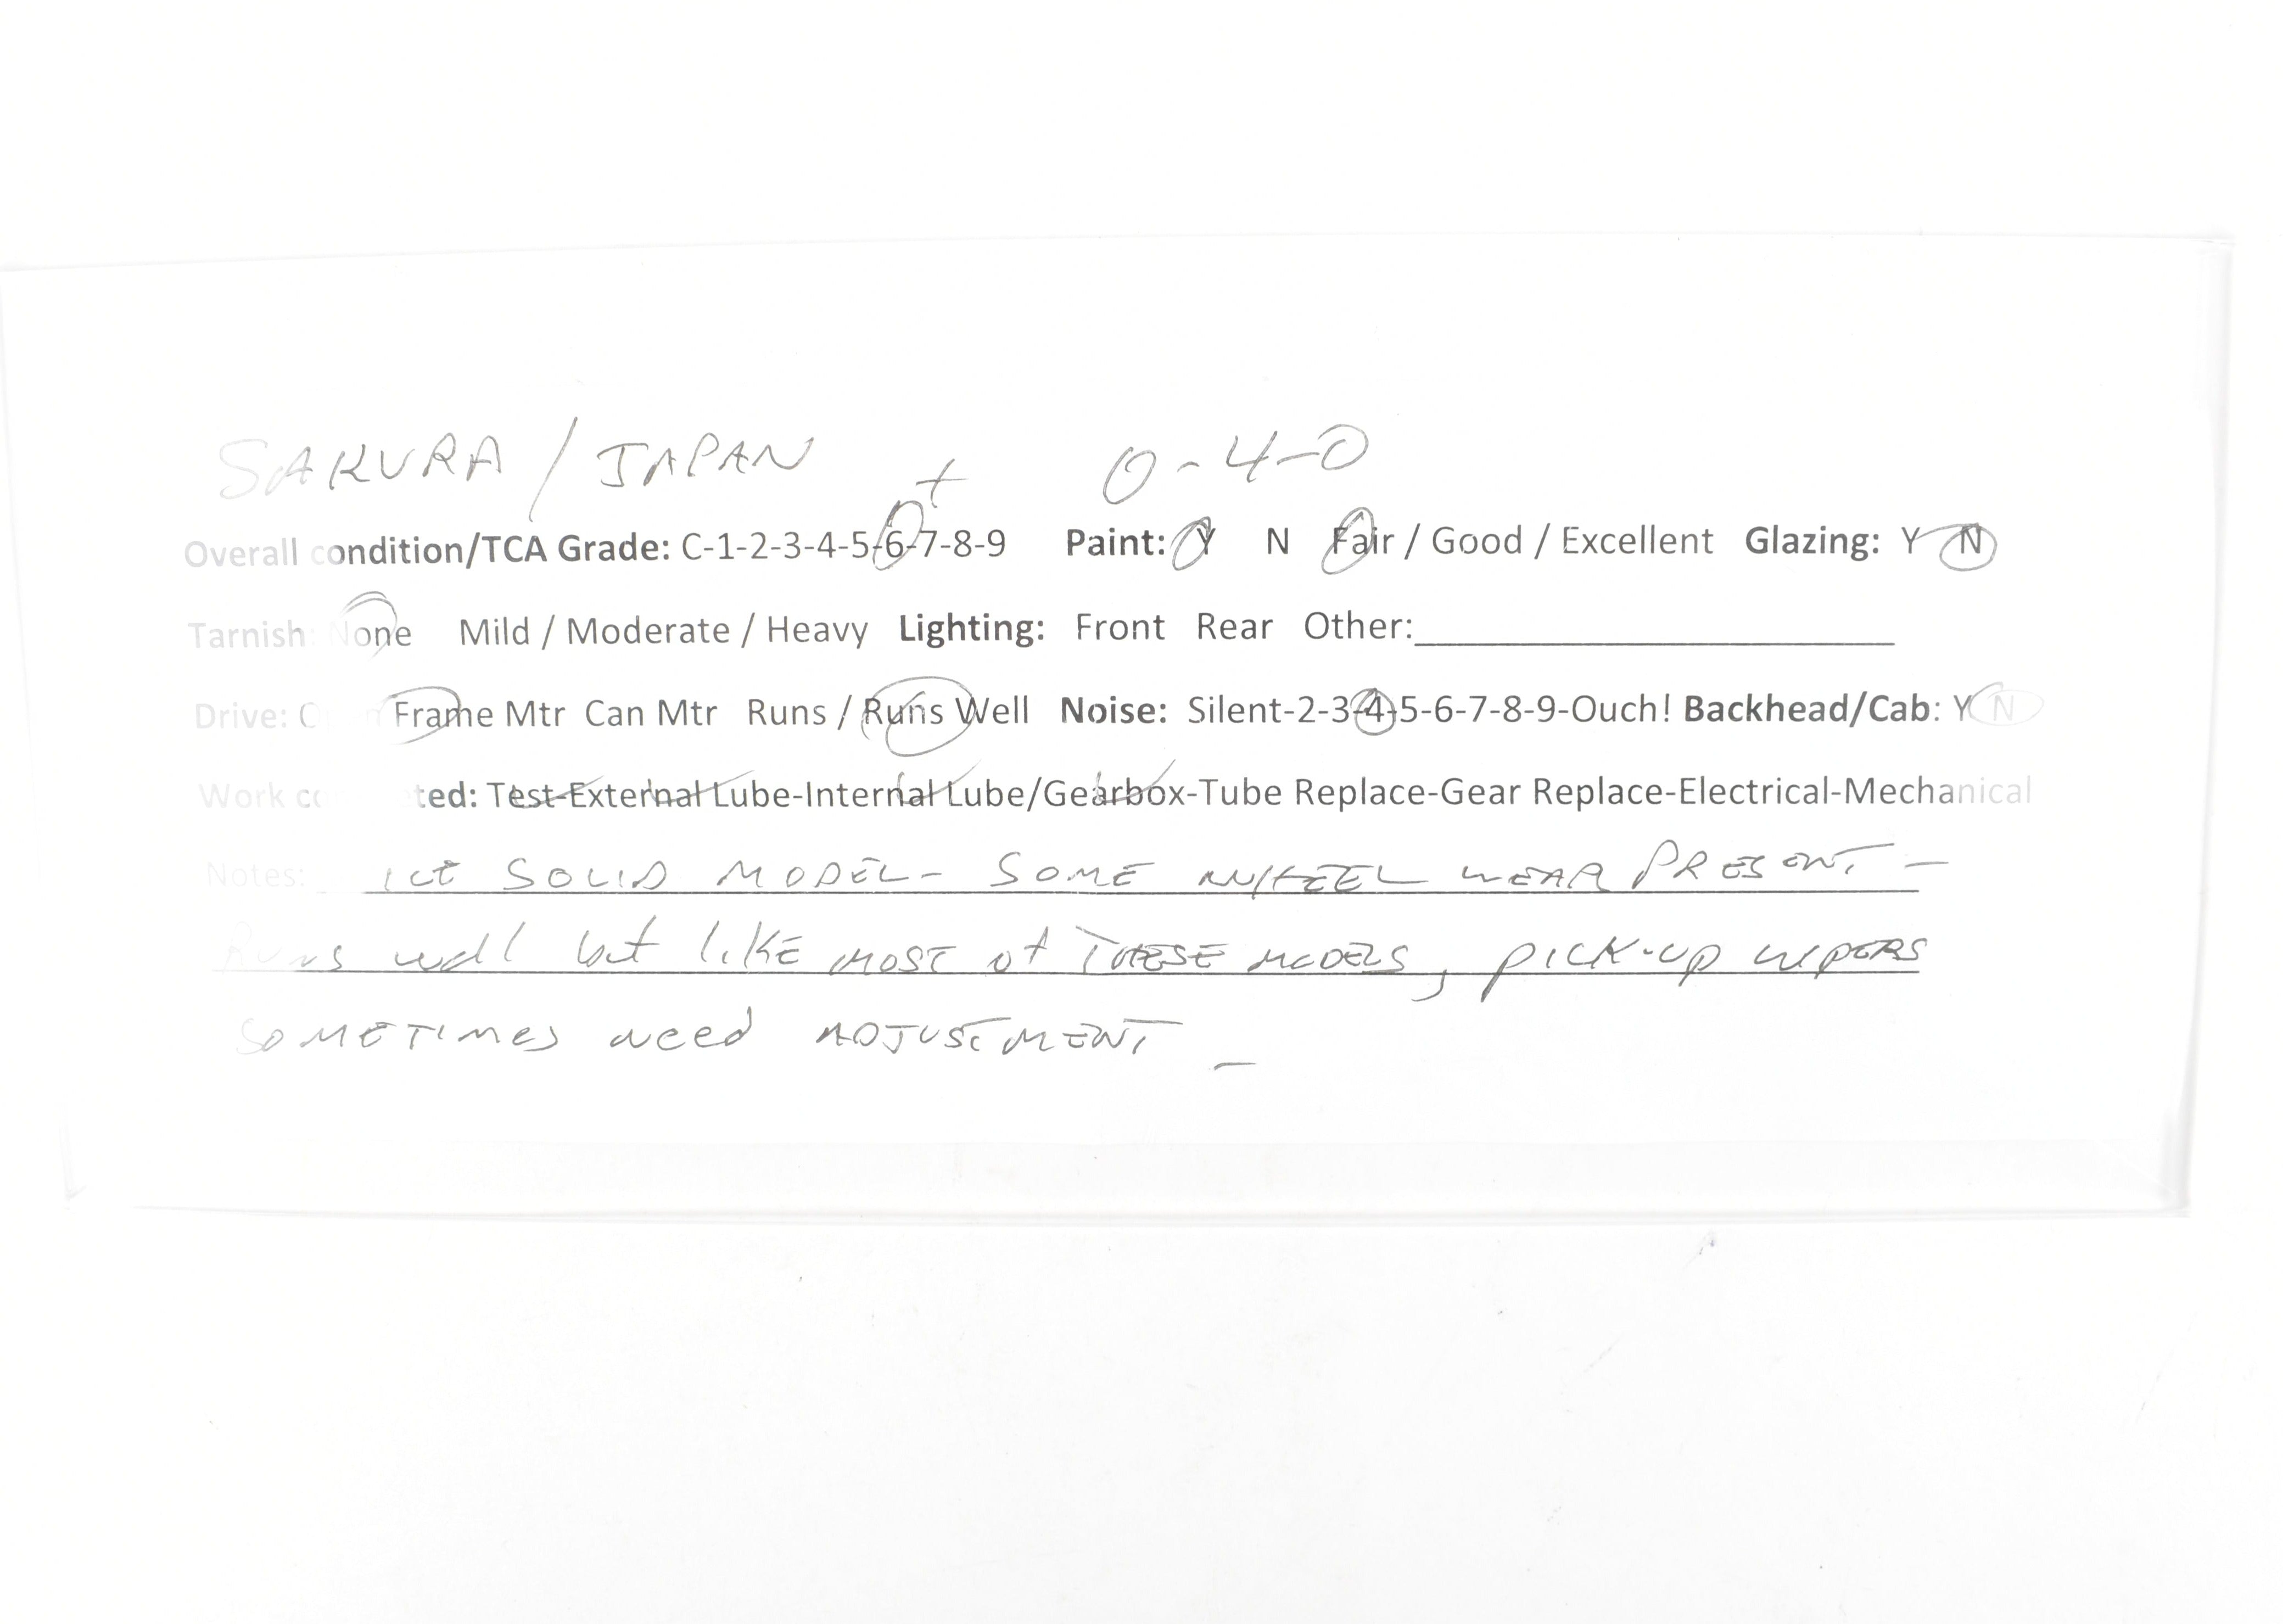 SAKURA / JAPAN + 0-4-0
Overall condition/TCA Grade: C-1-2-3-4-5-6-7-8-9 Paint: Y N Fair / Good / Excellent Glazing: Y N
Tarnish: None Mild / Moderate / Heavy Lighting: Front Rear Other:
Drive: Frame Mtr Can Mtr Runs / Runs Well Noise: Silent-2-3-4-5-6-7-8-9-Ouch! Backhead/Cab: Y N
Work ted: Test-External Lube-Internal Lube/Gearbox-Tube Replace-Gear Replace-Electrical-Mechanical
Notes: ice SOLID MODEL- SOME WHEEL WEAR PRESENT -
Runs well but like MOST of THESE MODELS, PICK-UP WIPERS
SOMETIMES need ADJUSTMENT -